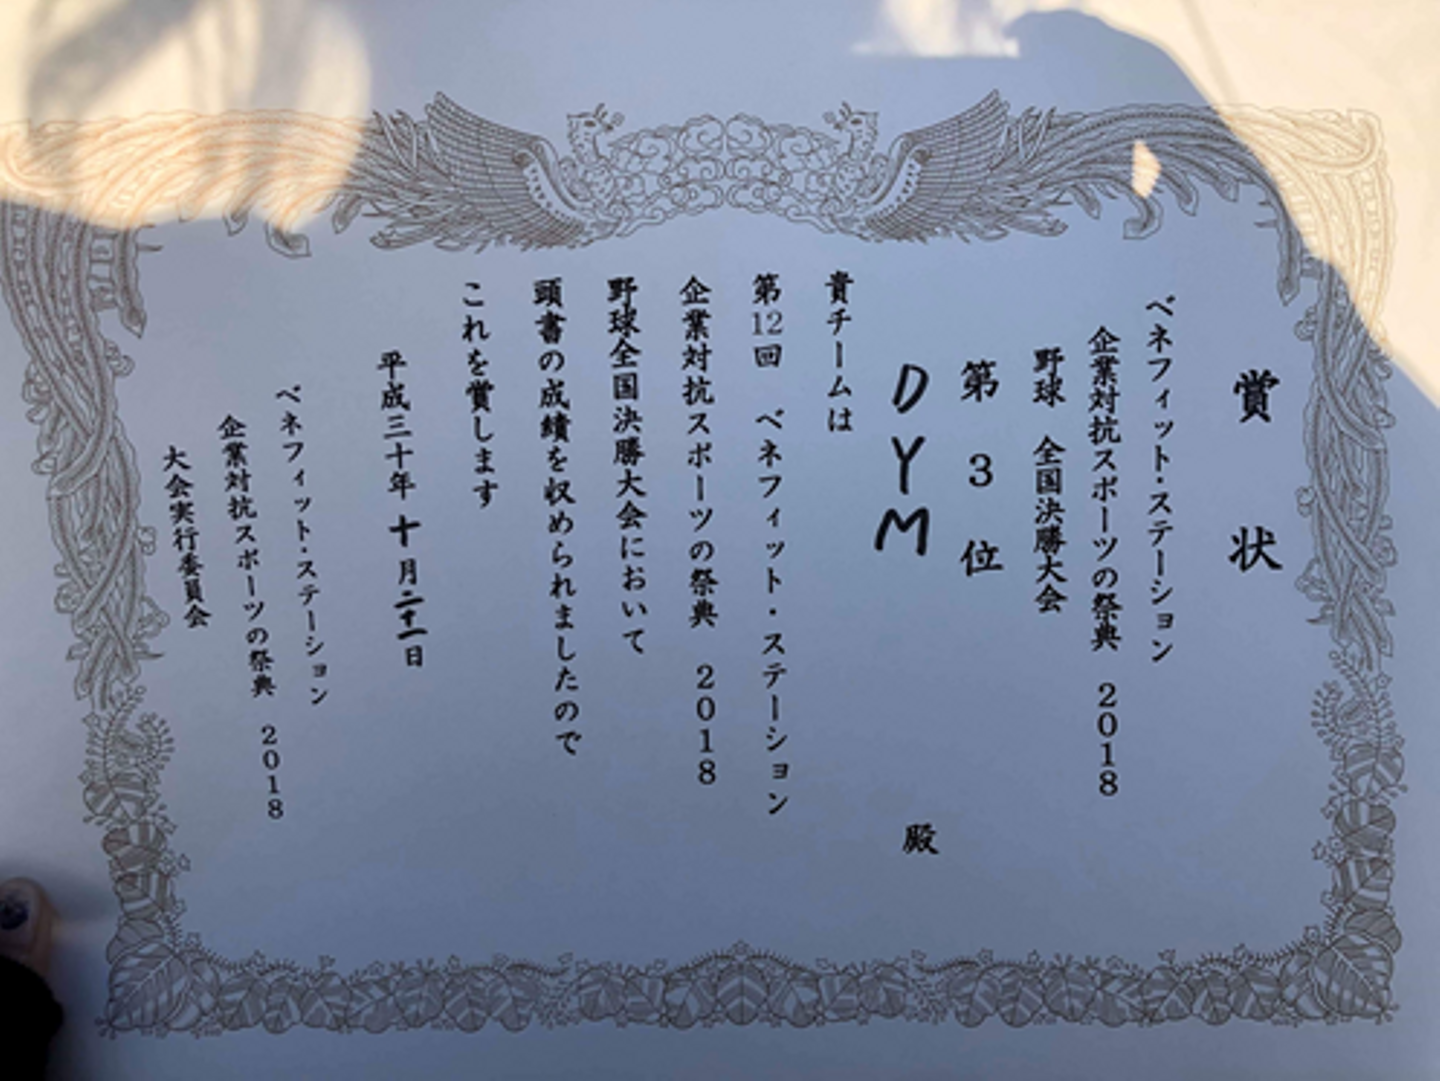 賞状
ベネフィット・ステーション
企業対抗スポーツの祭典 2018
野球 全国決勝大会
第3位
DYM 殿
貴チームは
第12回 ベネフィット・ステーション
企業対抗スポーツの祭典 2018
野球全国決勝大会において
頭書の成績を収められましたので
これを賞します
平成三十年十月二十一日
ベネフィット・ステーション
企業対抗スポーツの祭典 2018
大会実行委員会